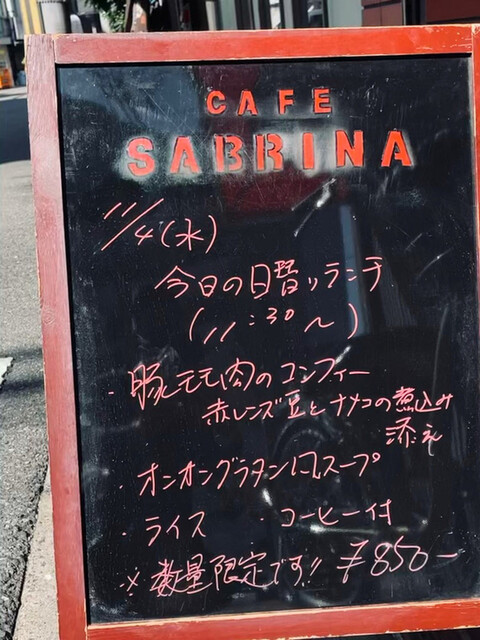 CAFE
SABRINA
11/4(水)
今日の日替りランチ
(11:30〜)
・豚モモ肉のコンフィー
赤レンズ豆とナメコの煮込み
添え
・オニオングラタン風スープ
・ライス ・コーヒー付
※数量限定です!! ¥850-